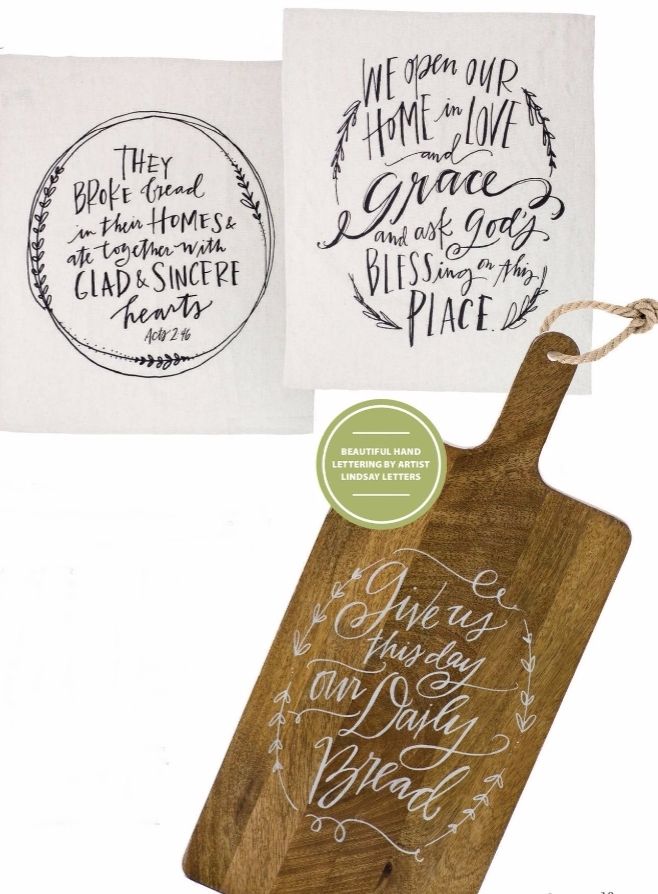 THEY
BROKE bread
in their HOMES &
ate together with
GLAD & SINCERE
hearts
Acts 2:46
WE open OUR
HOME in LOVE
and
grace
and ask God's
BLESSing on this
PLACE.
BEAUTIFUL HAND
LETTERING BY ARTIST
LINDSAY LETTERS
Give us
this day
our Daily
Bread